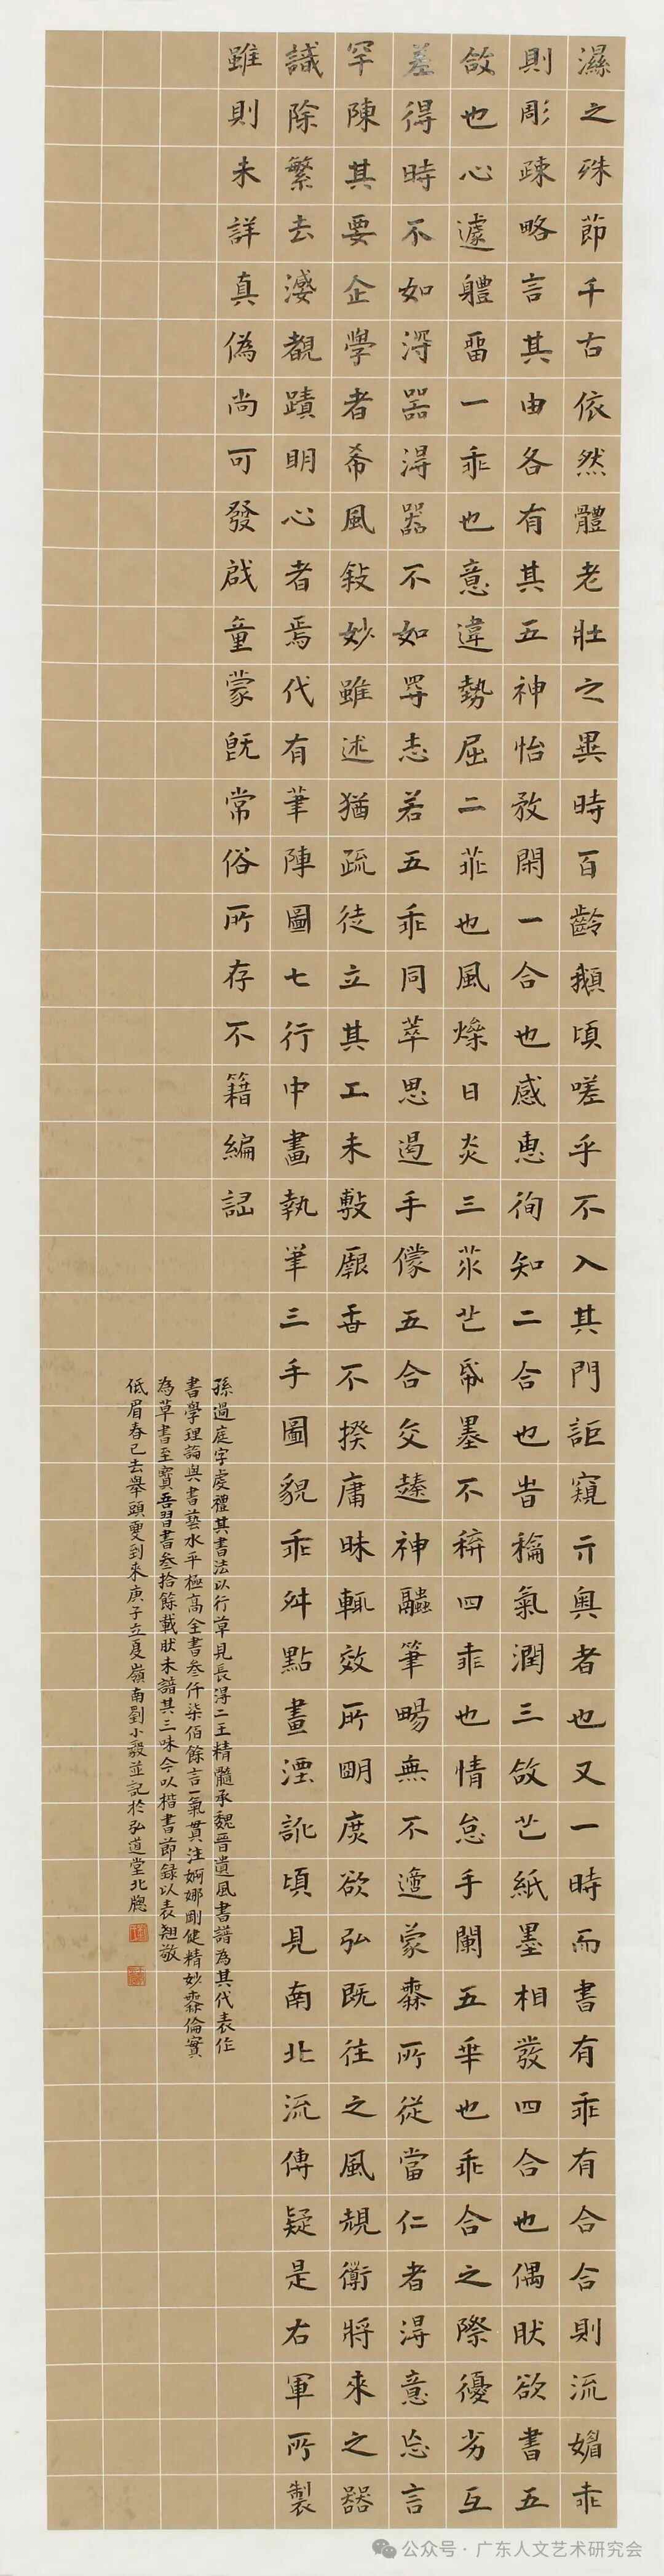 濕之殊節千古依然體老壯之異時百齡俄頃嗟乎不入其門詎窺亓奥者也又一時而書有乖有合合則流媚乖
則彫疎略言其由各有其五神怡務閑一合也感惠徇知二合也旹稐氣潤三合也紙墨相發四合也偶肰欲書五
合也心遽體留一乖也意違勢屈二乖也風燥日炎三乖也紙墨不稱四乖也情怠手闌五乖也乖合之際優劣互
差得時不如淂器淂器不如淂志若五乖同萃思遏手懞五合交臻神融筆暢無不適蒙無所從當仁者淂意忘言
罕陳其要企學者希風敘妙雖述猶疏徒立其工未敷厥旨不揆庸昧輒效所明庶欲弘既往之風規導將來之器
識除繁去濫覩蹟明心者焉代有筆陣圖七行中畫執筆三手圖貌乖舛點畫湮訛頃見南北流傳疑是右軍所製
雖則未詳真偽尚可發啟童蒙既常俗所存不籍編諿
孫過庭字虔禮其書法以行草見長淂二王精髓承魏晉遺風書譜為其代表作
書學理論與書藝水平極高全書叁仟柒佰餘言一氣貫注婀娜剛健精妙無倫實
為草書至寶吾習書叁拾餘載肰未諳其三味今以楷書節録以表翘敬
低眉春已去舉頭夏到來庚子立夏嶺南劉小毅並記於弘道堂北牕
公众号·广东人文艺术研究会